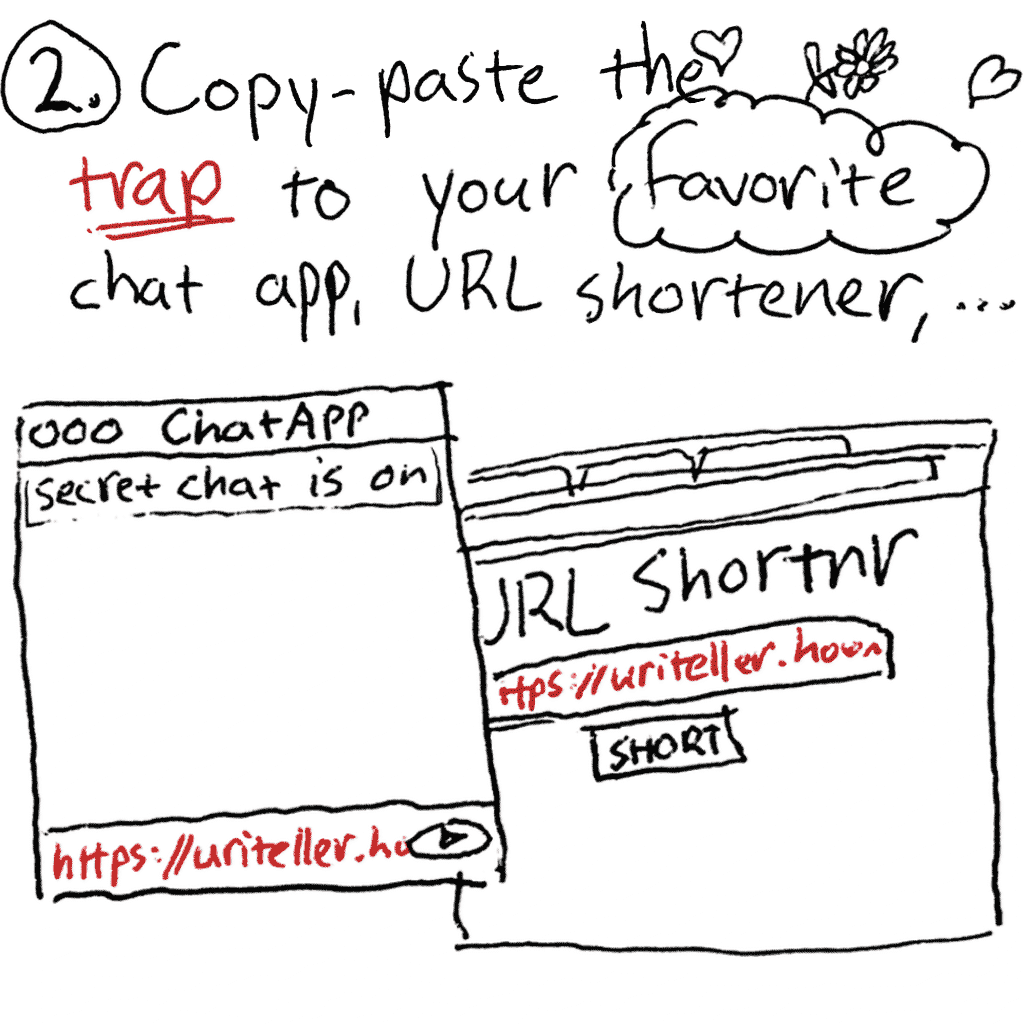 2. Copy-paste the
trap to your favorite
chat app, URL shortener, ...
000 ChatAPP
secret chat is on
https://uriteller.ho
URL Shortnr
ttps://uriteller.hoon
SHORT